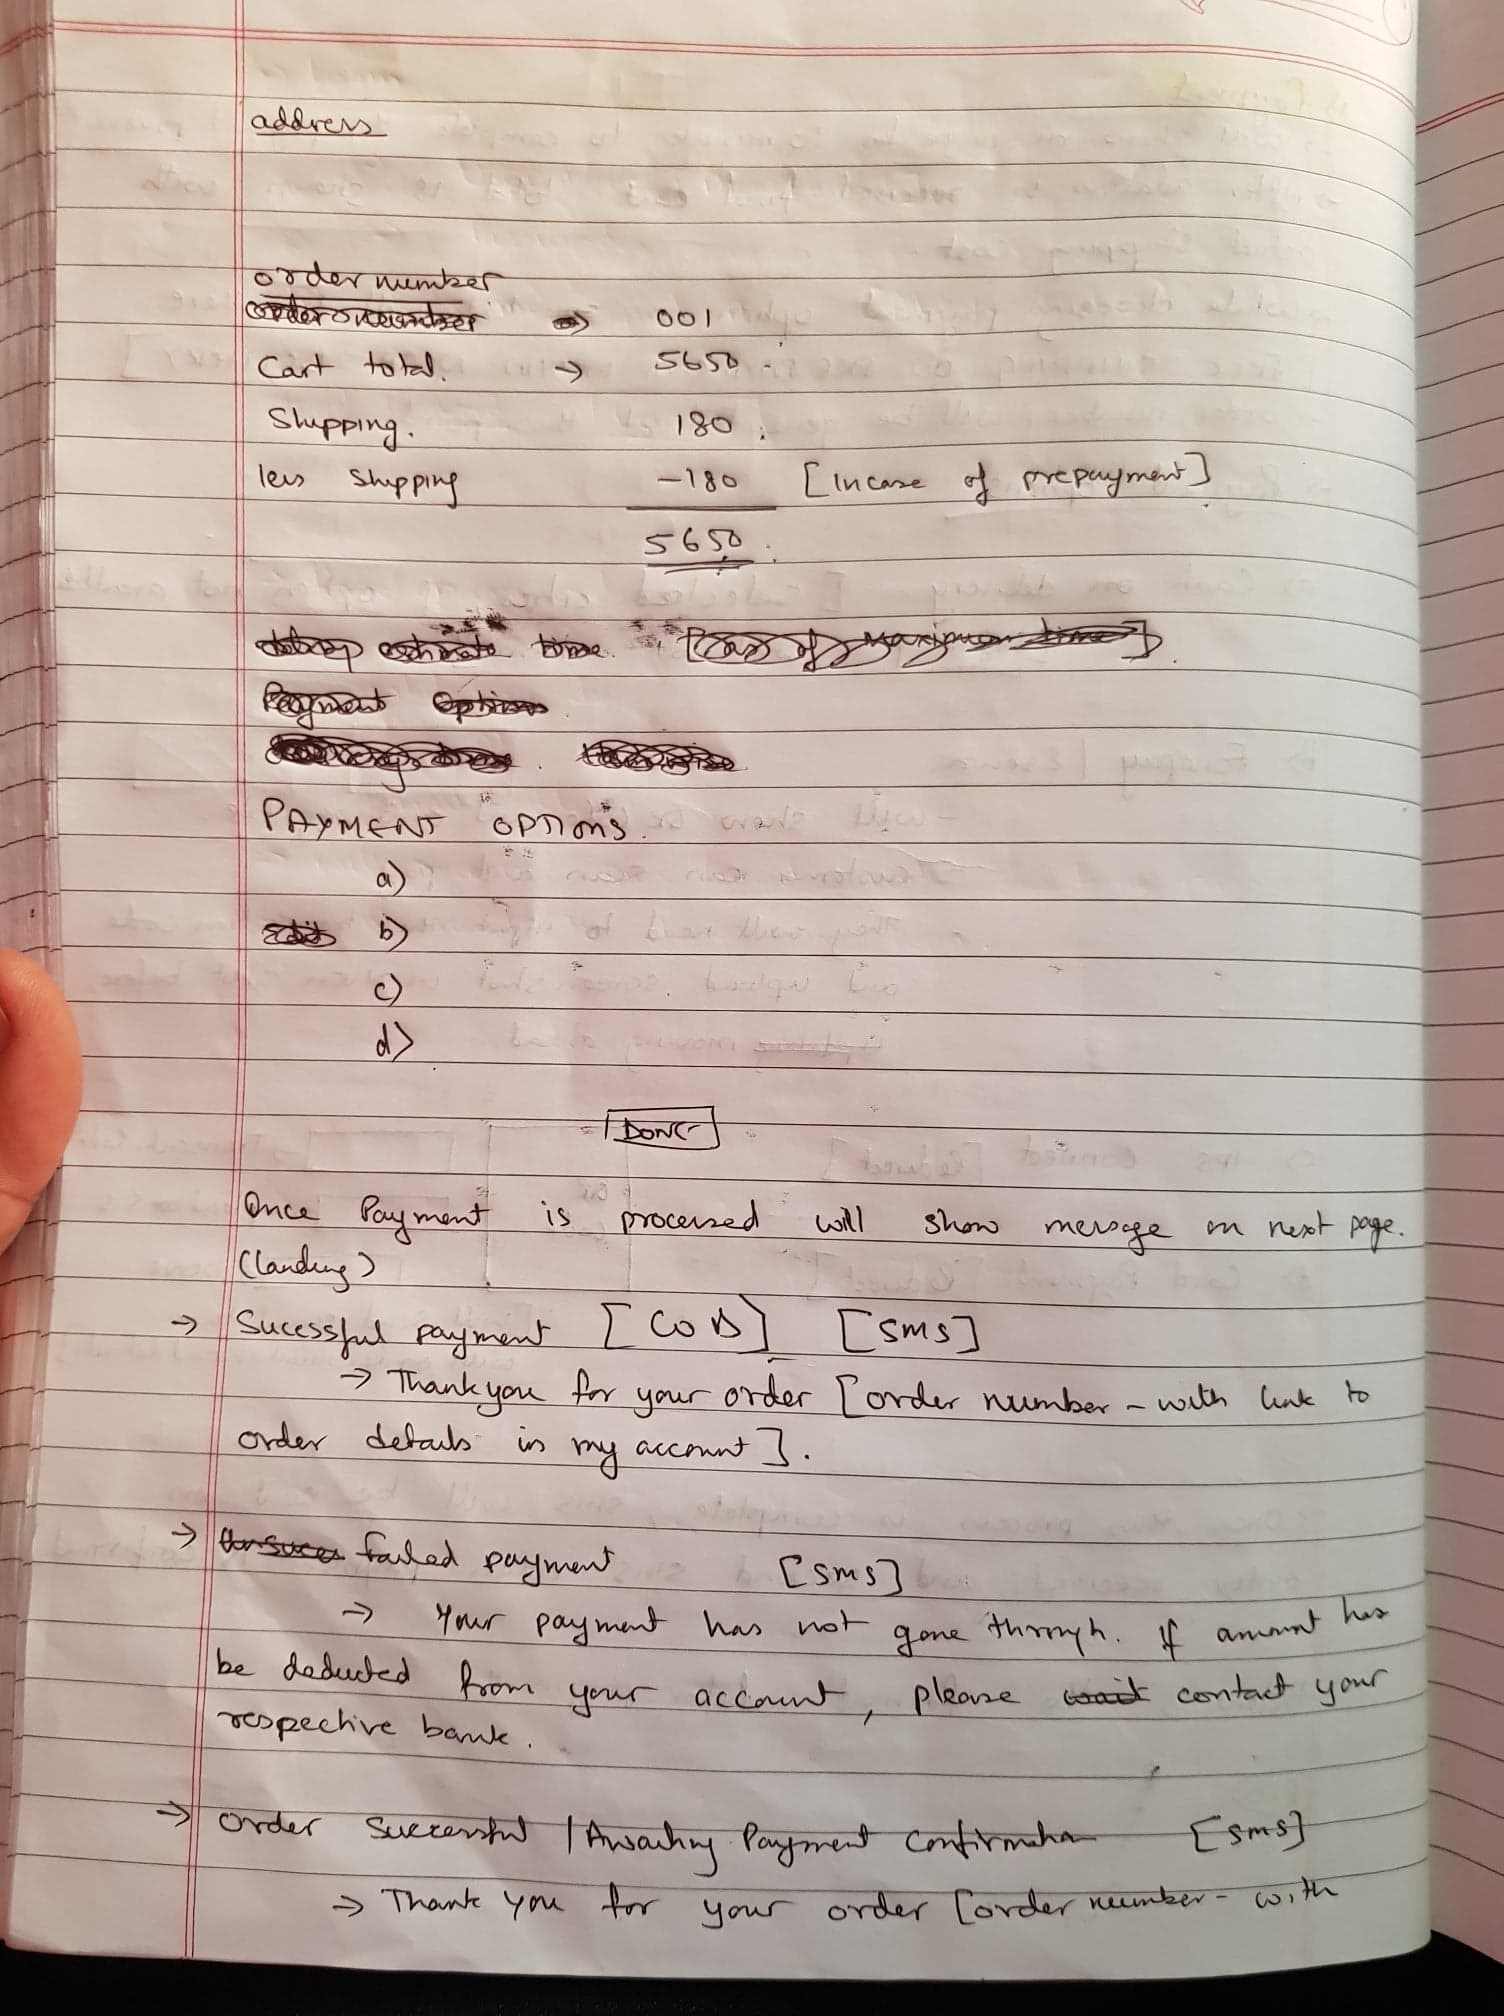 address
order number
order number → 001
Cart total. → 5650
Shipping. 180
less shipping -180 [Incase of prepayment]
5650
delivery estimate time.
Payment Options
PAYMENT OPTIONS.
a)
b)
c)
d)
DONE
Once Payment is processed will show message on next page.
(landing)
→ Sucessful payment [COD] [SMS]
→ Thank you for your order [order number - with link to
order details in my account].
→ Unsucces failed payment [SMS]
→ Your payment has not gone through. If amount has
be deducted from your account, please wait contact your
respective bank.
→ Order Successful / Awaiting Payment Confirmation [SMS]
→ Thank you for your order [order number - with